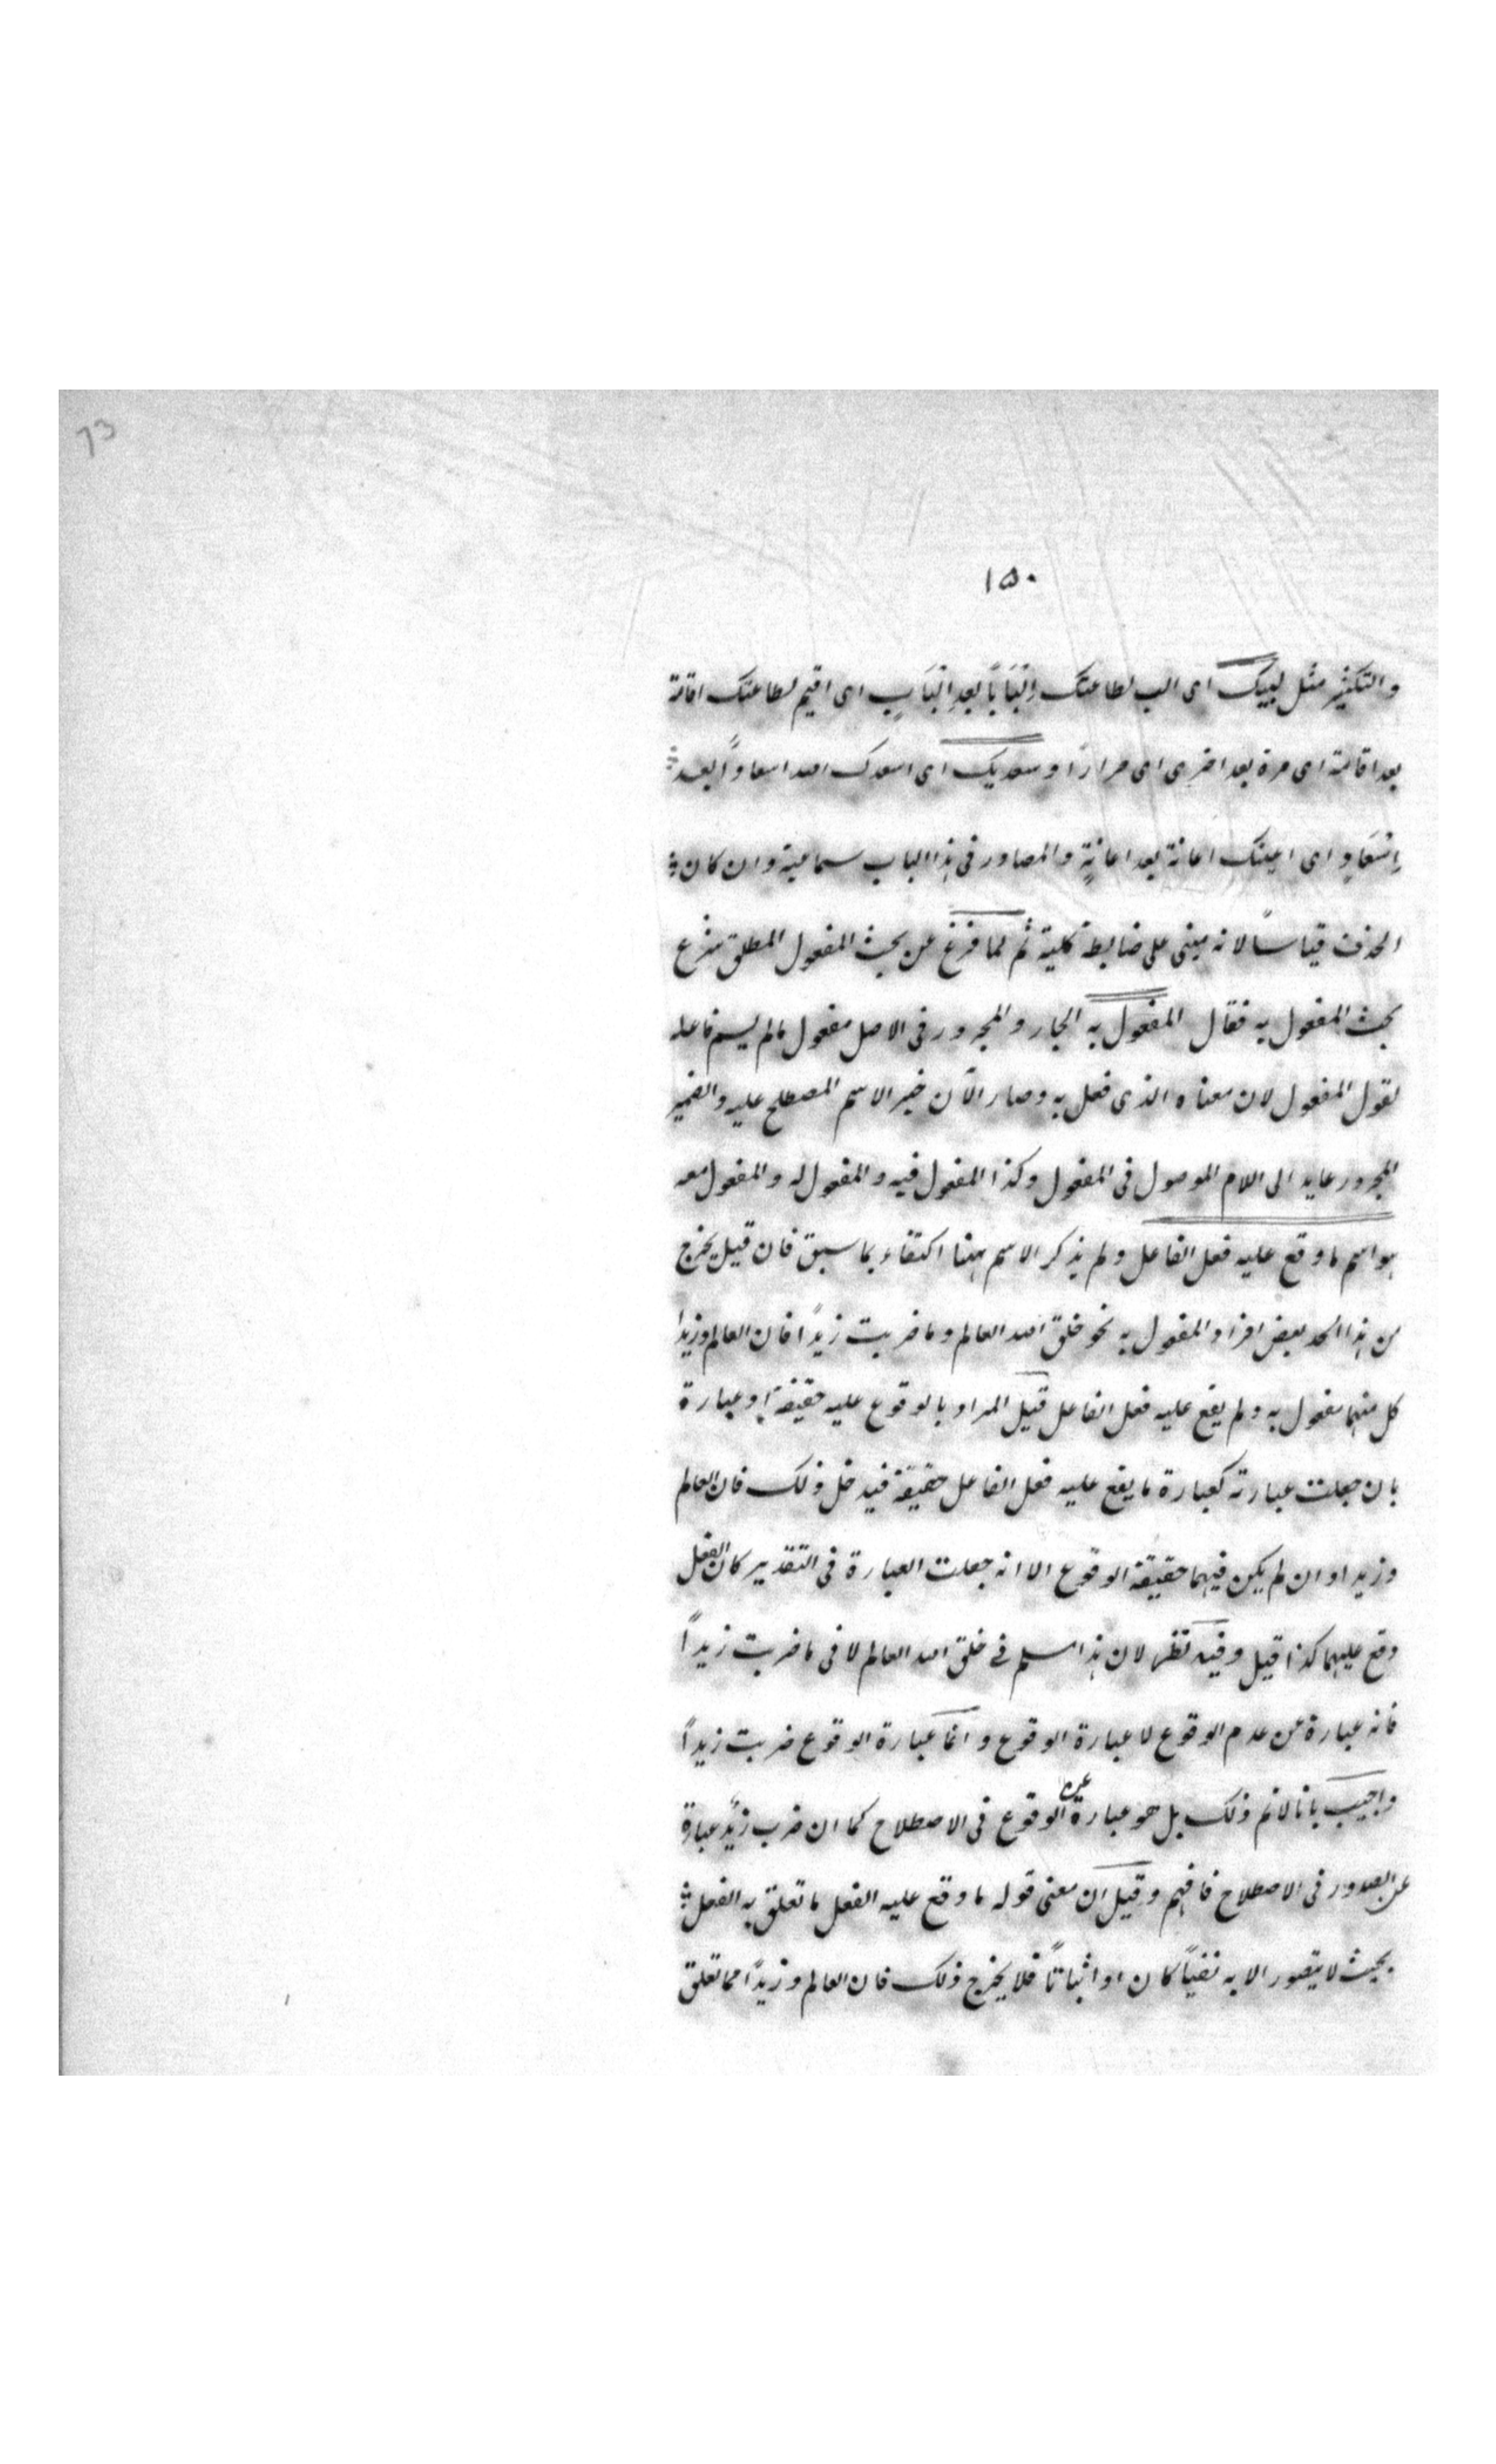 73
١٥٠
والتكثير مثل لبيك اى الب لطاعتك اِلْبَاباً بعد اِلْبَابٍ اى اقيم لطاعتك اقامة
بعد اقامة اى مرة بعد اخرى اى مرارًا وسعديك اى اسعدك اسعادًا بعد
اِسْعَادٍ اى اعينك اعانة بعد اعانةٍ والمصادر فى هذا الباب سماعية وان كان
الحذف قياساً لانه مبنى على ضابطة كلية ثم لما فرغ عن بحث المفعول المطلق شرع
بحث المفعول به فقال المفعول به الجار والمجرور فى الاصل مفعول مالم يسم فاعله
لقول المفعول لان معناه الذى فعل به وصار الآن خبر الاسم المصطلح عليه والضمير
المجرور عايد الى اللام الموصول فى المفعول وكذا المفعول فيه والمفعول له والمفعول معه
هو اسم ما وقع عليه فعل الفاعل ولم يذكر الاسم ههنا اكتفاء بما سبق فان قيل يخرج
من هذا الحد بعض افراد المفعول به نحو خلق الله العالم وما ضربت زيدًا فان العالم وزيدا
كل منهما مفعول به ولم يقع عليه فعل الفاعل قيل المراد بالوقوع عليه حقيقة او عبارة
بان جعلت عبارته كعبارة ما يقع عليه فعل الفاعل حقيقة فيدخل ذلك فان العالم
وزيدا وان لم يكن فيهما حقيقة الوقوع الا انه جعلت العبارة فى التقدير كان الفعل
وقع عليهما كذا قيل وفيه نظر لان هذا مسلم فى خلق الله العالم لا فى ما ضربت زيداً
فانه عبارة عن عدم الوقوع لا عبارة الوقوع وانما عبارة الوقوع ضربت زيداً
واجيب بانا لانم ذلك بل هو عبارة عن الوقوع فى الاصطلاح كما ان ضرب زيد عبارة
عن الصدور فى الاصطلاح فافهم وقيل ان معنى قوله ما وقع عليه الفعل ما تعلق به الفعل
بحيث لا يتصور الا به نفياً كان او اثباتاً فلا يخرج ذلك فان العالم وزيدًا مما تعلق